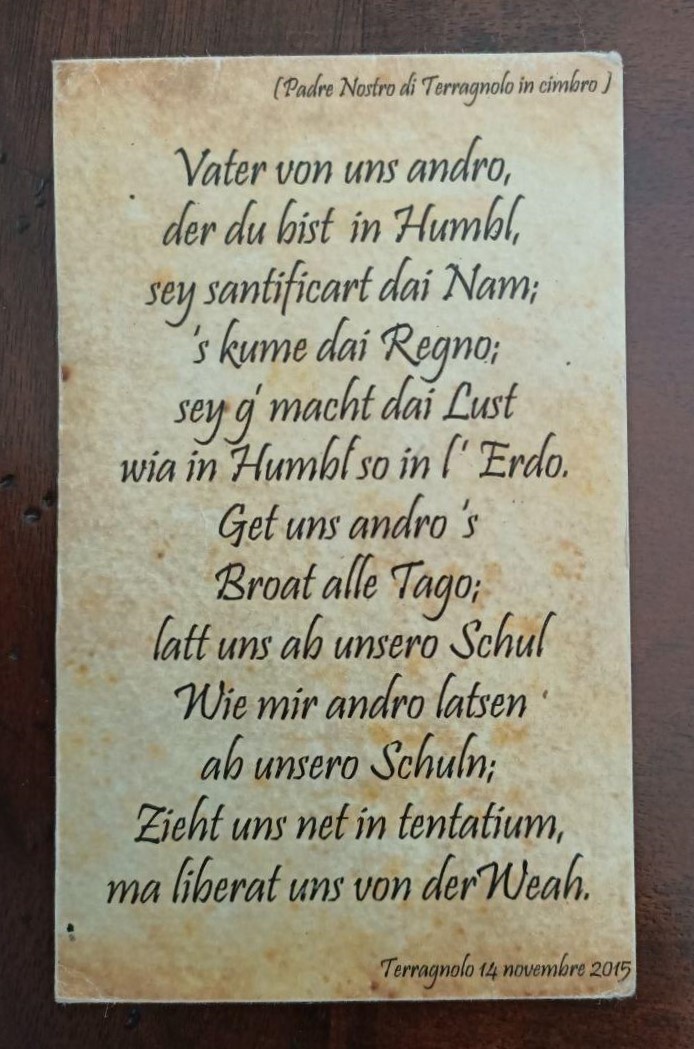 (Padre Nostro di Terragnolo in cimbro )
Vater von uns andro,
der du bist in Humbl,
sey santificart dai Nam;
's kume dai Regno;
sey g' macht dai Lust
wia in Humbl so in l' Erdo.
Get uns andro 's
Broat alle Tago;
latt uns ab unsero Schul
Wie mir andro latsen
ab unsero Schuln;
Zieht uns net in tentatium,
ma liberat uns von der Weah.
Terragnolo 14 novembre 2015